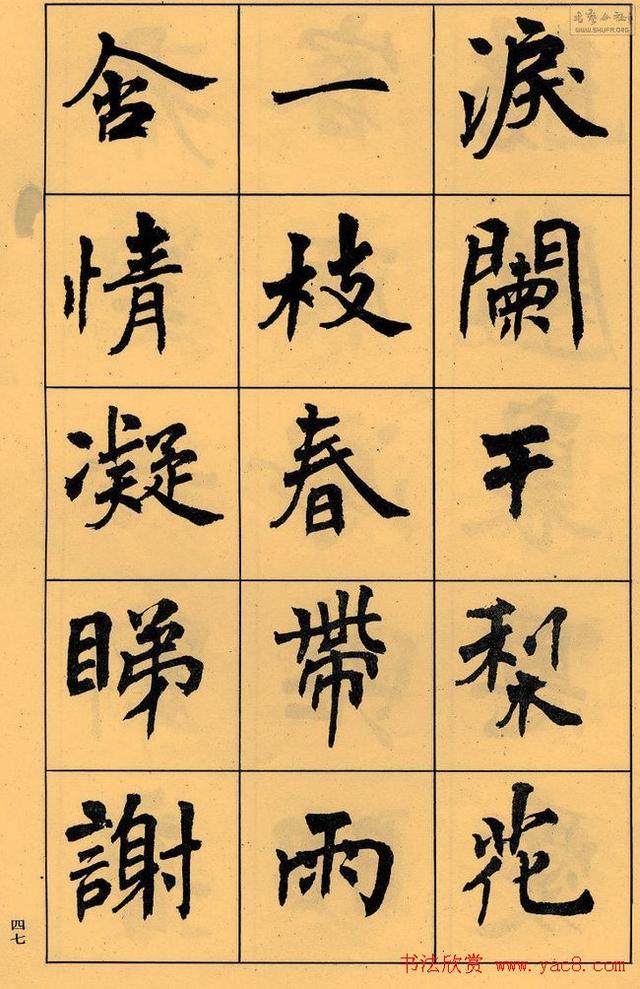 淚闌干梨花
一枝春帶雨
含情凝睇謝
四七
WWW.SHUFR.ORG
书法欣赏 www.yac8.com